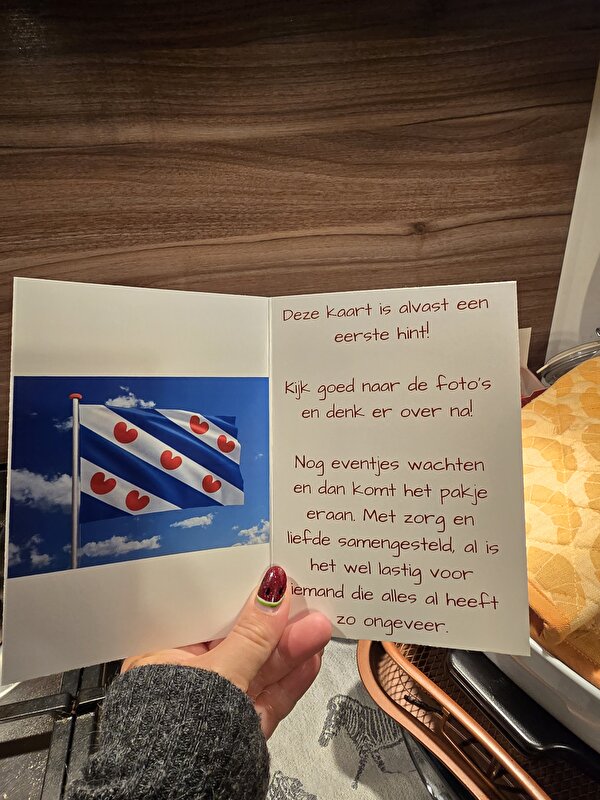 Deze kaart is alvast een
eerste hint!
Kijk goed naar de foto's
en denk er over na!
Nog eventjes wachten
en dan komt het pakje
eraan. Met zorg en
liefde samengesteld, al is
het wel lastig voor
iemand die alles al heeft
zo ongeveer.